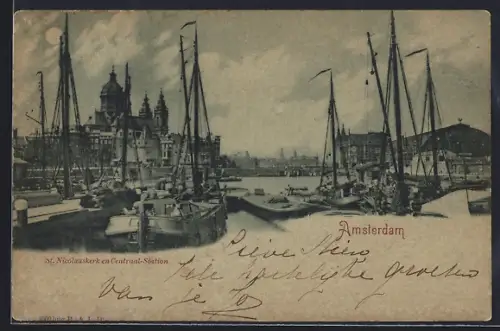 Amsterdam
St. Nicolaaskerk en Centraal-Station
Lieve Mien
Vele hartelijke groeten
van je Jo